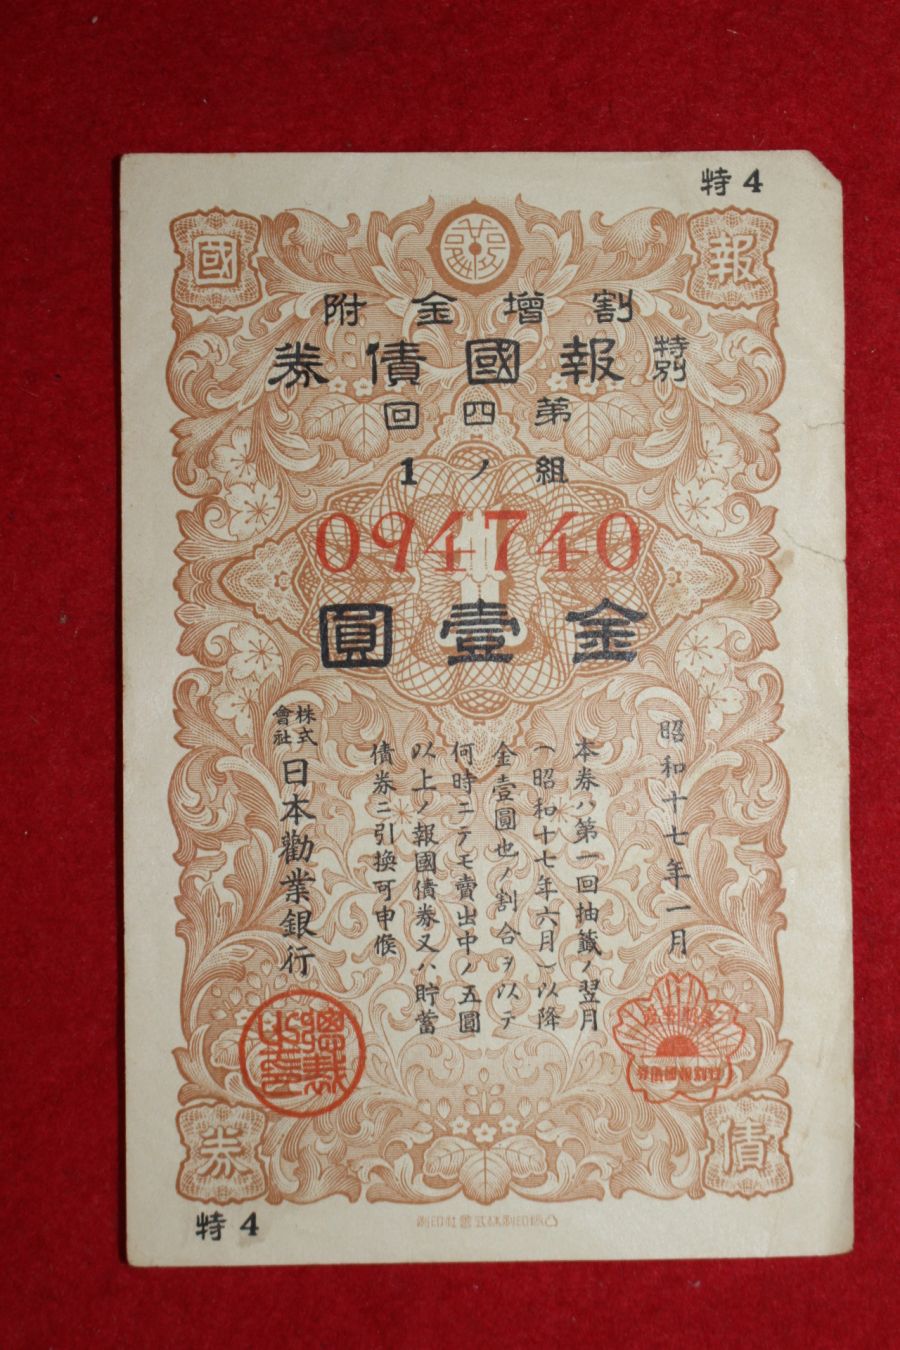 特 4
報國債券
割増金附
特別報國債券
第四回
組ノ1
094740
金壹圓
昭和十七年一月
本券ハ第一回抽籤ノ翌月
(昭和十七年六月)以降
金壹圓也ノ割合ヲ以テ
何時ニテモ賣出中ノ五圓
以上ノ報國債券又ハ貯蓄
債券ニ引換可申候
株式會社日本勸業銀行
總裁之印
特 4
凸版印刷株式會社印刷